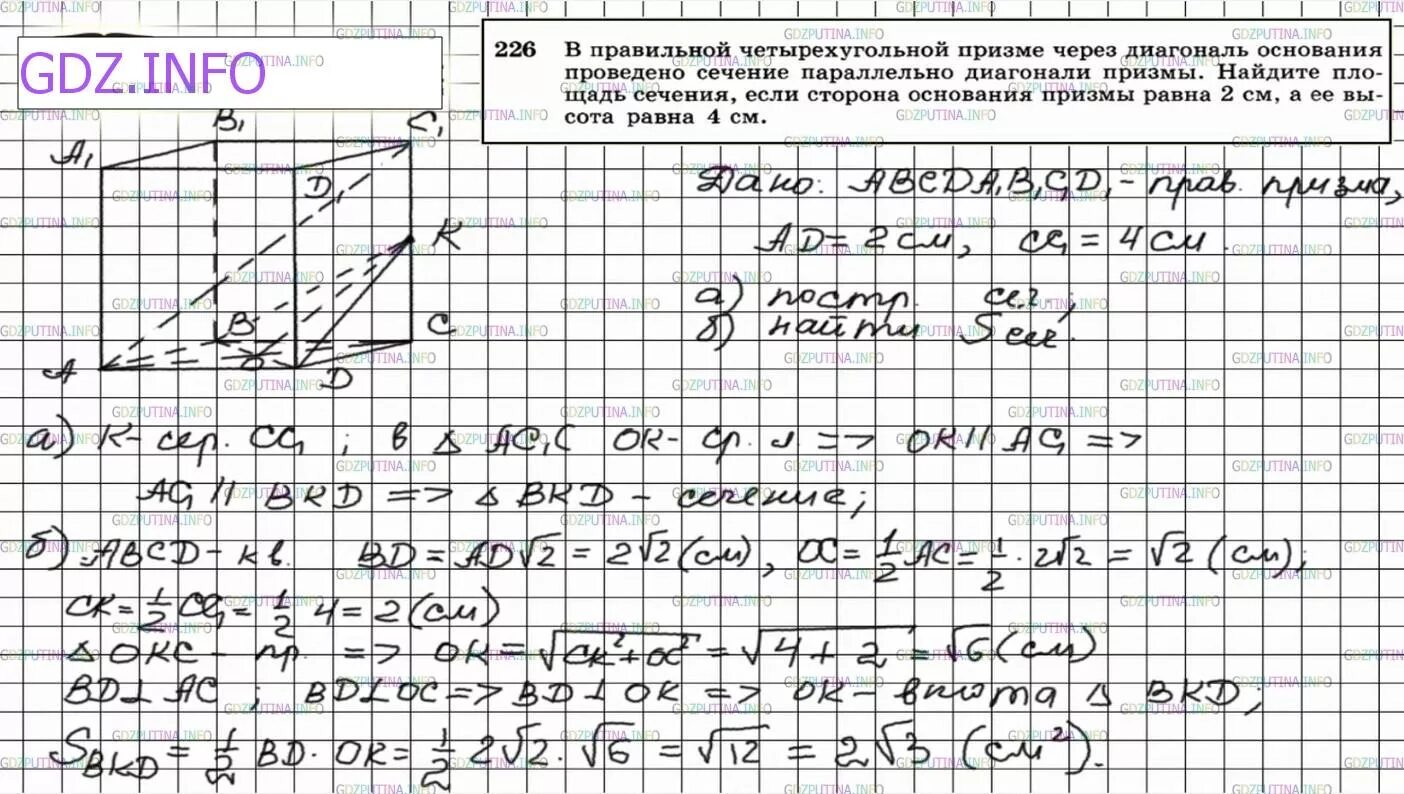 GDZ.INFO
226 В правильной четырехугольной призме через диагональ основания
проведено сечение параллельно диагонали призмы. Найдите пло-
щадь сечения, если сторона основания призмы равна 2 см, а ее вы-
сота равна 4 см.
B₁ C₁
A₁
D₁
K
B C
A O D
Дано: ABCDA₁B₁C₁D₁ - прав. призма,
AD = 2 см, CC₁ = 4 см.
а) постр. сеч.;
б) найти Sсеч.
а) K - сер. CC₁; в △ AC₁C OK - ср. л. => OK || AC₁ =>
AC₁ || BKD => △ BKD - сечение;
б) ABCD - кв. BD = AD√2 = 2√2 (см), OC = 1/2 AC = 1/2 · 2√2 = √2 (см);
CK = 1/2 CC₁ = 1/2 4 = 2 (см)
△ OKC - пр. => OK = √(CK² + OC²) = √(4 + 2) = √6 (см)
BD ⊥ AC; BD ⊥ OC => BD ⊥ OK => OK - высота △ BKD;
S BKD = 1/2 BD · OK = 1/2 2√2 · √6 = √12 = 2√3 (см²).
GDZPUTINA.INFO